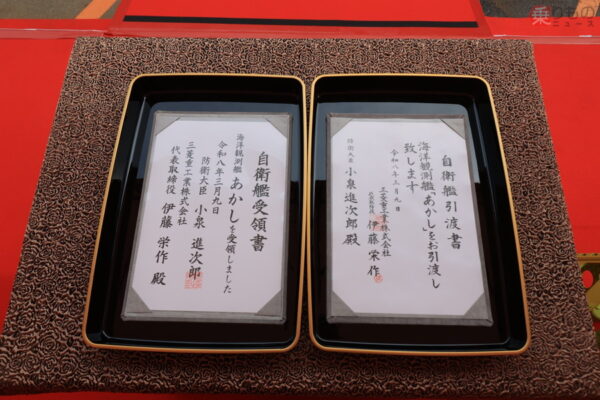 自衛艦引渡書
海洋観測艦「あかし」をお引渡し
致します
令和八年三月九日
三菱重工業株式会社
代表取締役 伊藤栄作
防衛大臣 小泉進次郎殿
自衛艦受領書
海洋観測艦あかしを受領しました
令和八年三月九日
防衛大臣 小泉進次郎
三菱重工業株式会社
代表取締役 伊藤栄作殿
乗りものニュース